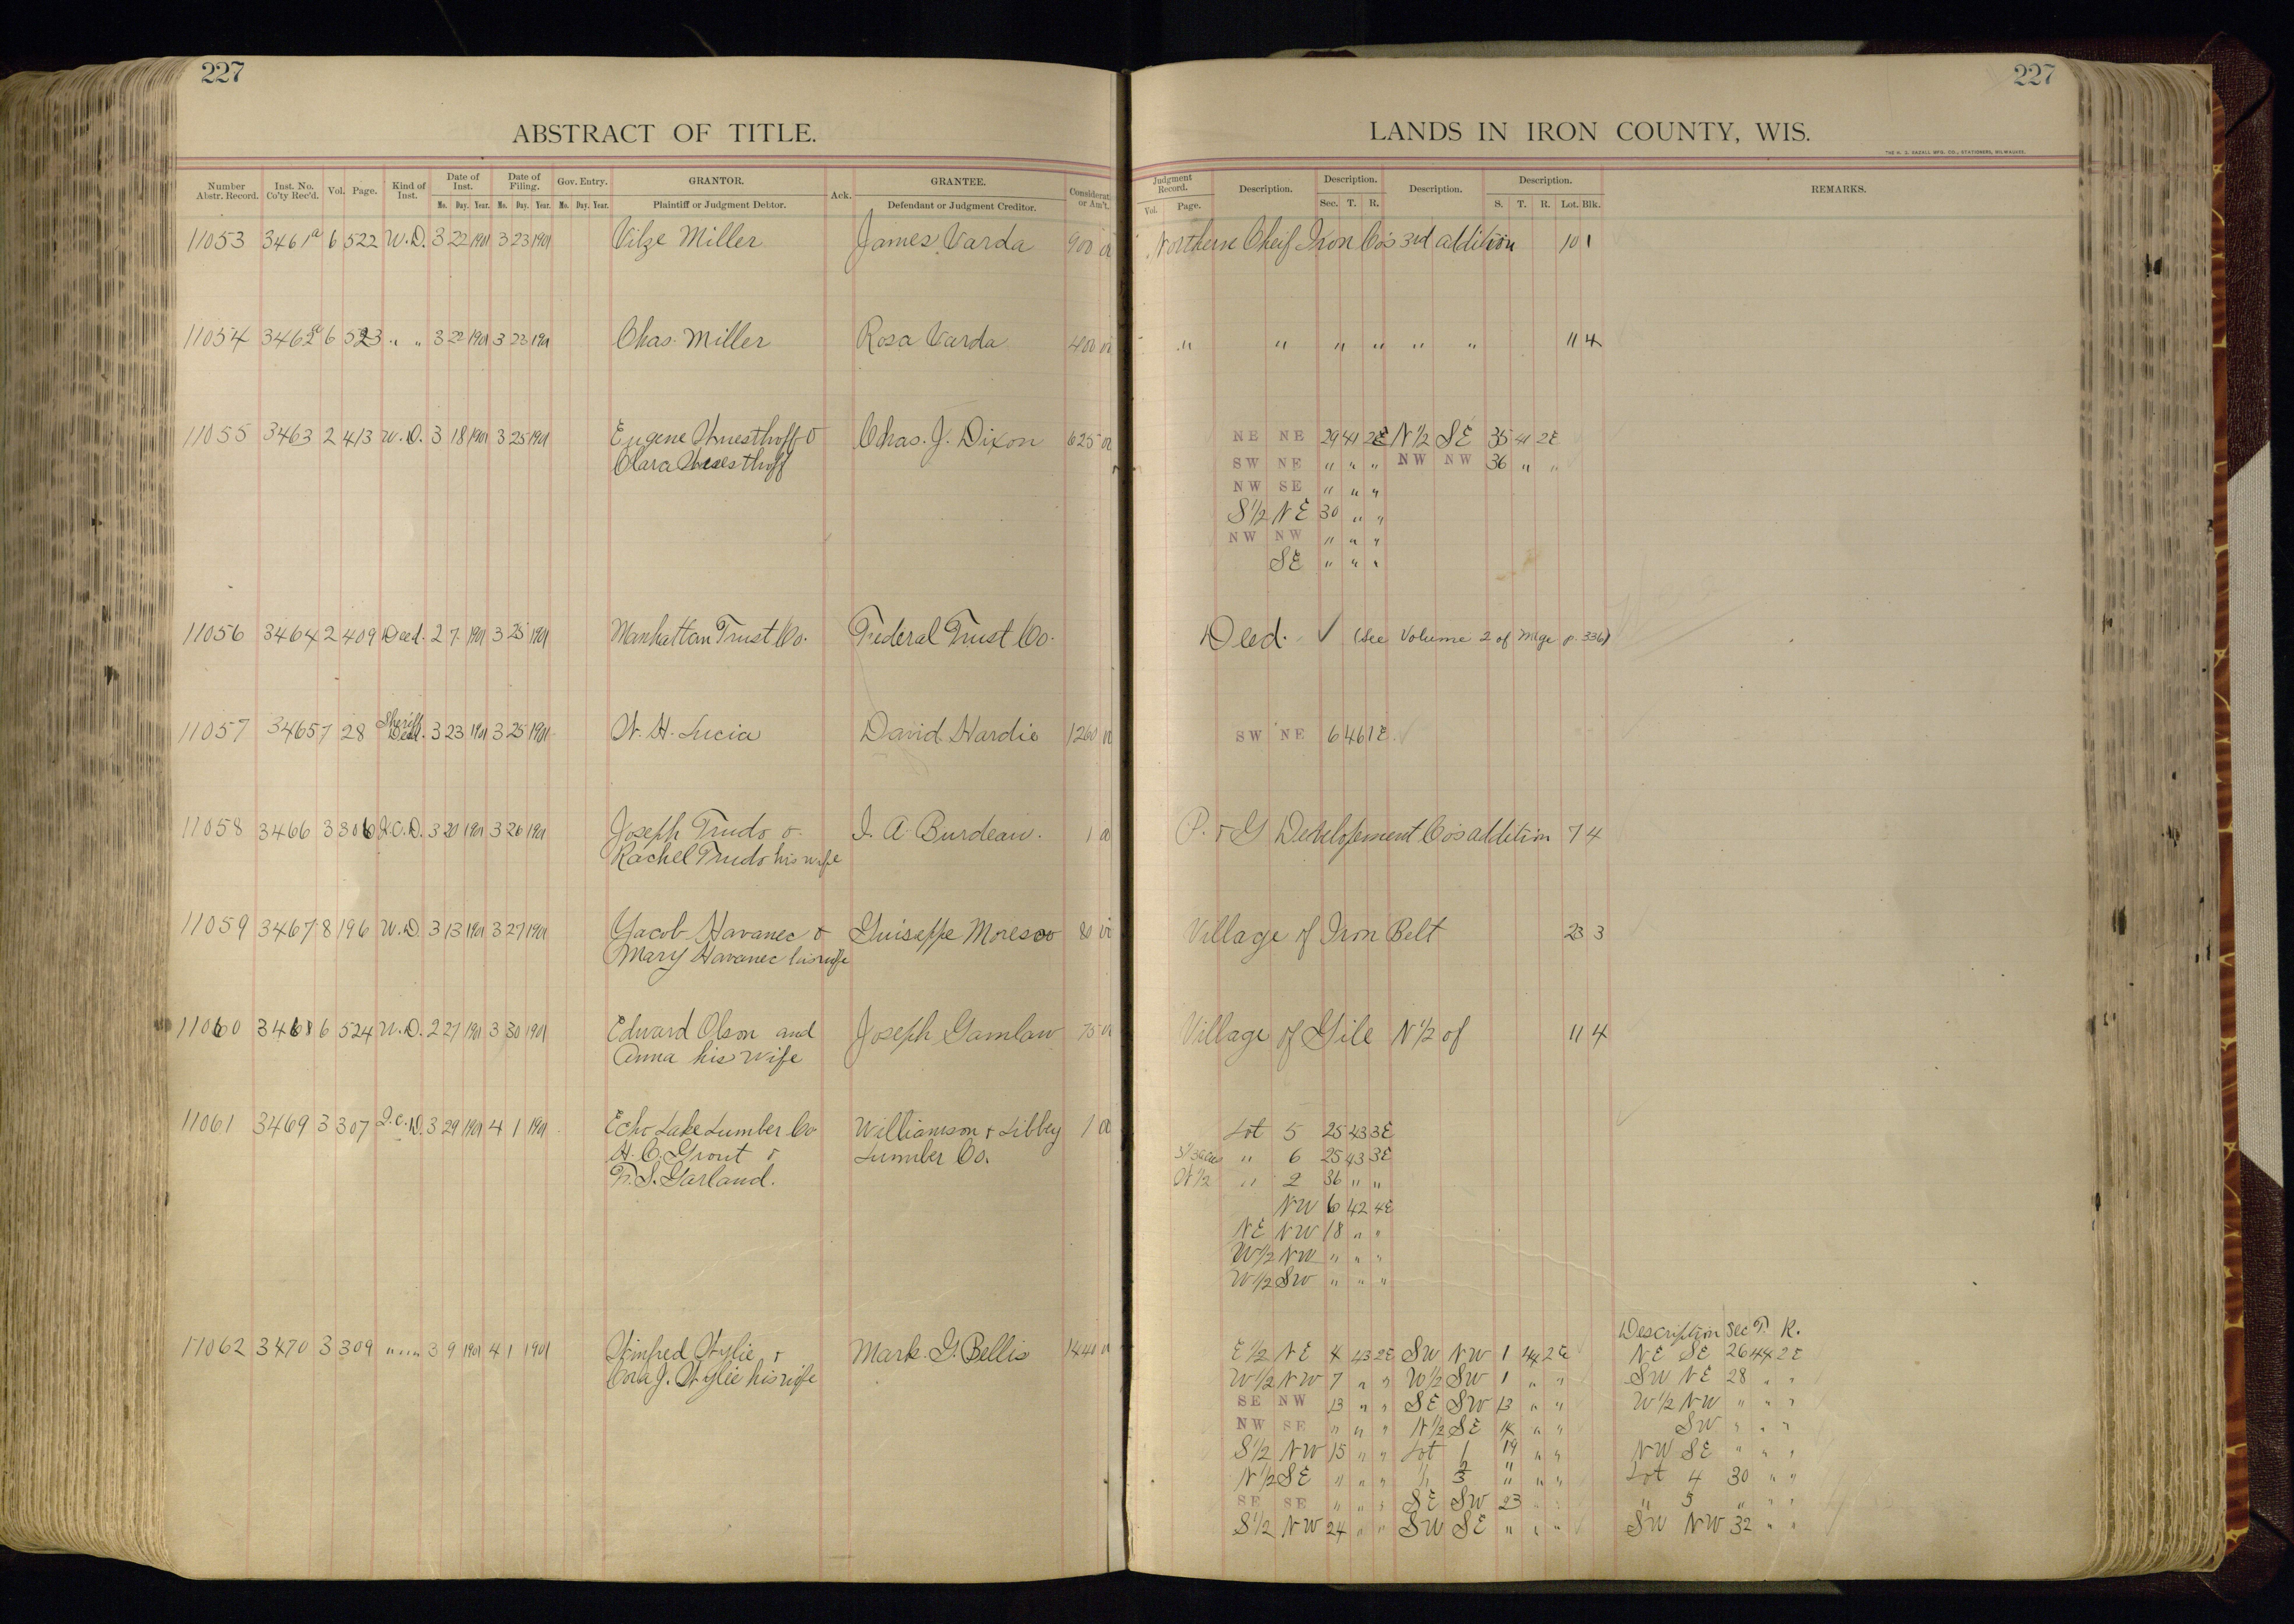 227
ABSTRACT OF TITLE.
Number Abstr. Record. Inst. No. Co'ty Rec'd. Vol. Page. Kind of Inst. Date of Inst. Mo. Day. Year. Date of Filing. Mo. Day. Year. Gov. Entry. Mo. Day. Year. GRANTOR. Plaintiff or Judgment Debtor. Ack. GRANTEE. Defendant or Judgment Creditor. Considerat. or Am't.
11053 3461a 6 522 W.D. 3 22 1901 3 23 1901 Vilze Miller James Varda 900 00
11054 3462a 6 523 " " 3 22 1901 3 23 1901 Chas. Miller Rosa Varda 400 00
11055 3463 2 413 W.D. 3 18 1901 3 25 1901 Eugene Wuesthoff & Chas. J. Dixon 625 00
Clara Wuesthoff
11056 3464 2 409 Deed. 2 7 1901 3 25 1901 Manhattan Trust Co. Federal Trust Co.
11057 3465 7 28 Sheriff Deed. 3 23 1901 3 25 1901 W. H. Lucia David Hardie 1260 00
11058 3466 3 306 Q.C.D. 3 20 1901 3 26 1901 Joseph Trudo & I. A. Burdeau. 1 00
Rachel Trudo his wife
11059 3467 8 196 W.D. 3 13 1901 3 27 1901 Yacob Havanec & Guiseppe Moresco 80 00
Mary Havanec his wife
11060 3468 6 524 W.D. 2 27 1901 3 30 1901 Edward Olson and Joseph Gamlaw 75 00
Anna his wife
11061 3469 3 307 Q.C.D. 3 29 1901 4 1 1901 Echo Lake Lumber Co Williamson & Libbey 1 00
H. C. Grout & Lumber Co.
F. S. Garland.
11062 3470 3 309 " " " 3 9 1901 4 1 1901 Winfred Wylie & Mark G. Bellis 1440 00
Cora J. Wylie his wife
227
LANDS IN IRON COUNTY, WIS.
Judgment Record. Vol. Page. Description. Description. Sec. T. R. Description. Description. S. T. R. Lot. Blk. REMARKS.
Northern Cheif Iron Co's 3rd addition 10 1
" " " " " " 11 4
NE NE 29 41 2E N1/2 SE 35 41 2E
SW NE " " " NW NW 36 " "
NW SE " " "
S1/2 NE 30 " "
NW NW " " "
SE " " "
Deed. ✓ (See Volume 2 of Mtge p. 336)
SW NE 6 46 1E
P. & G Development Co's addition 7 4
Village of Iron Belt 23 3
Village of Gile N1/2 of 11 4
Lot 5 25 43 3E
" 6 25 43 3E
W1/2 " 2 36 " "
NW 6 42 4E
NE NW 18 " "
W1/2 NW " " "
W1/2 SW " " "
Description Sec T. R.
E1/2 NE 4 43 2E SW NW 1 44 2E NE SE 26 44 2E
W1/2 NW 7 " " W1/2 SW 1 " " SW NE 28 " "
SE NW 13 " " SE SW 13 " " W1/2 NW " " "
NW SE " " " N1/2 SE 14 " " SW " " "
S1/2 NW 15 " " Lot 1 19 " " NW SE " " "
N1/2 SE " " " " " " " Lot 4 30 " "
SE SE " " " SE SW 23 " " " 5 " " "
S1/2 NW 24 " " SW SE " " " SW NW 32 " "